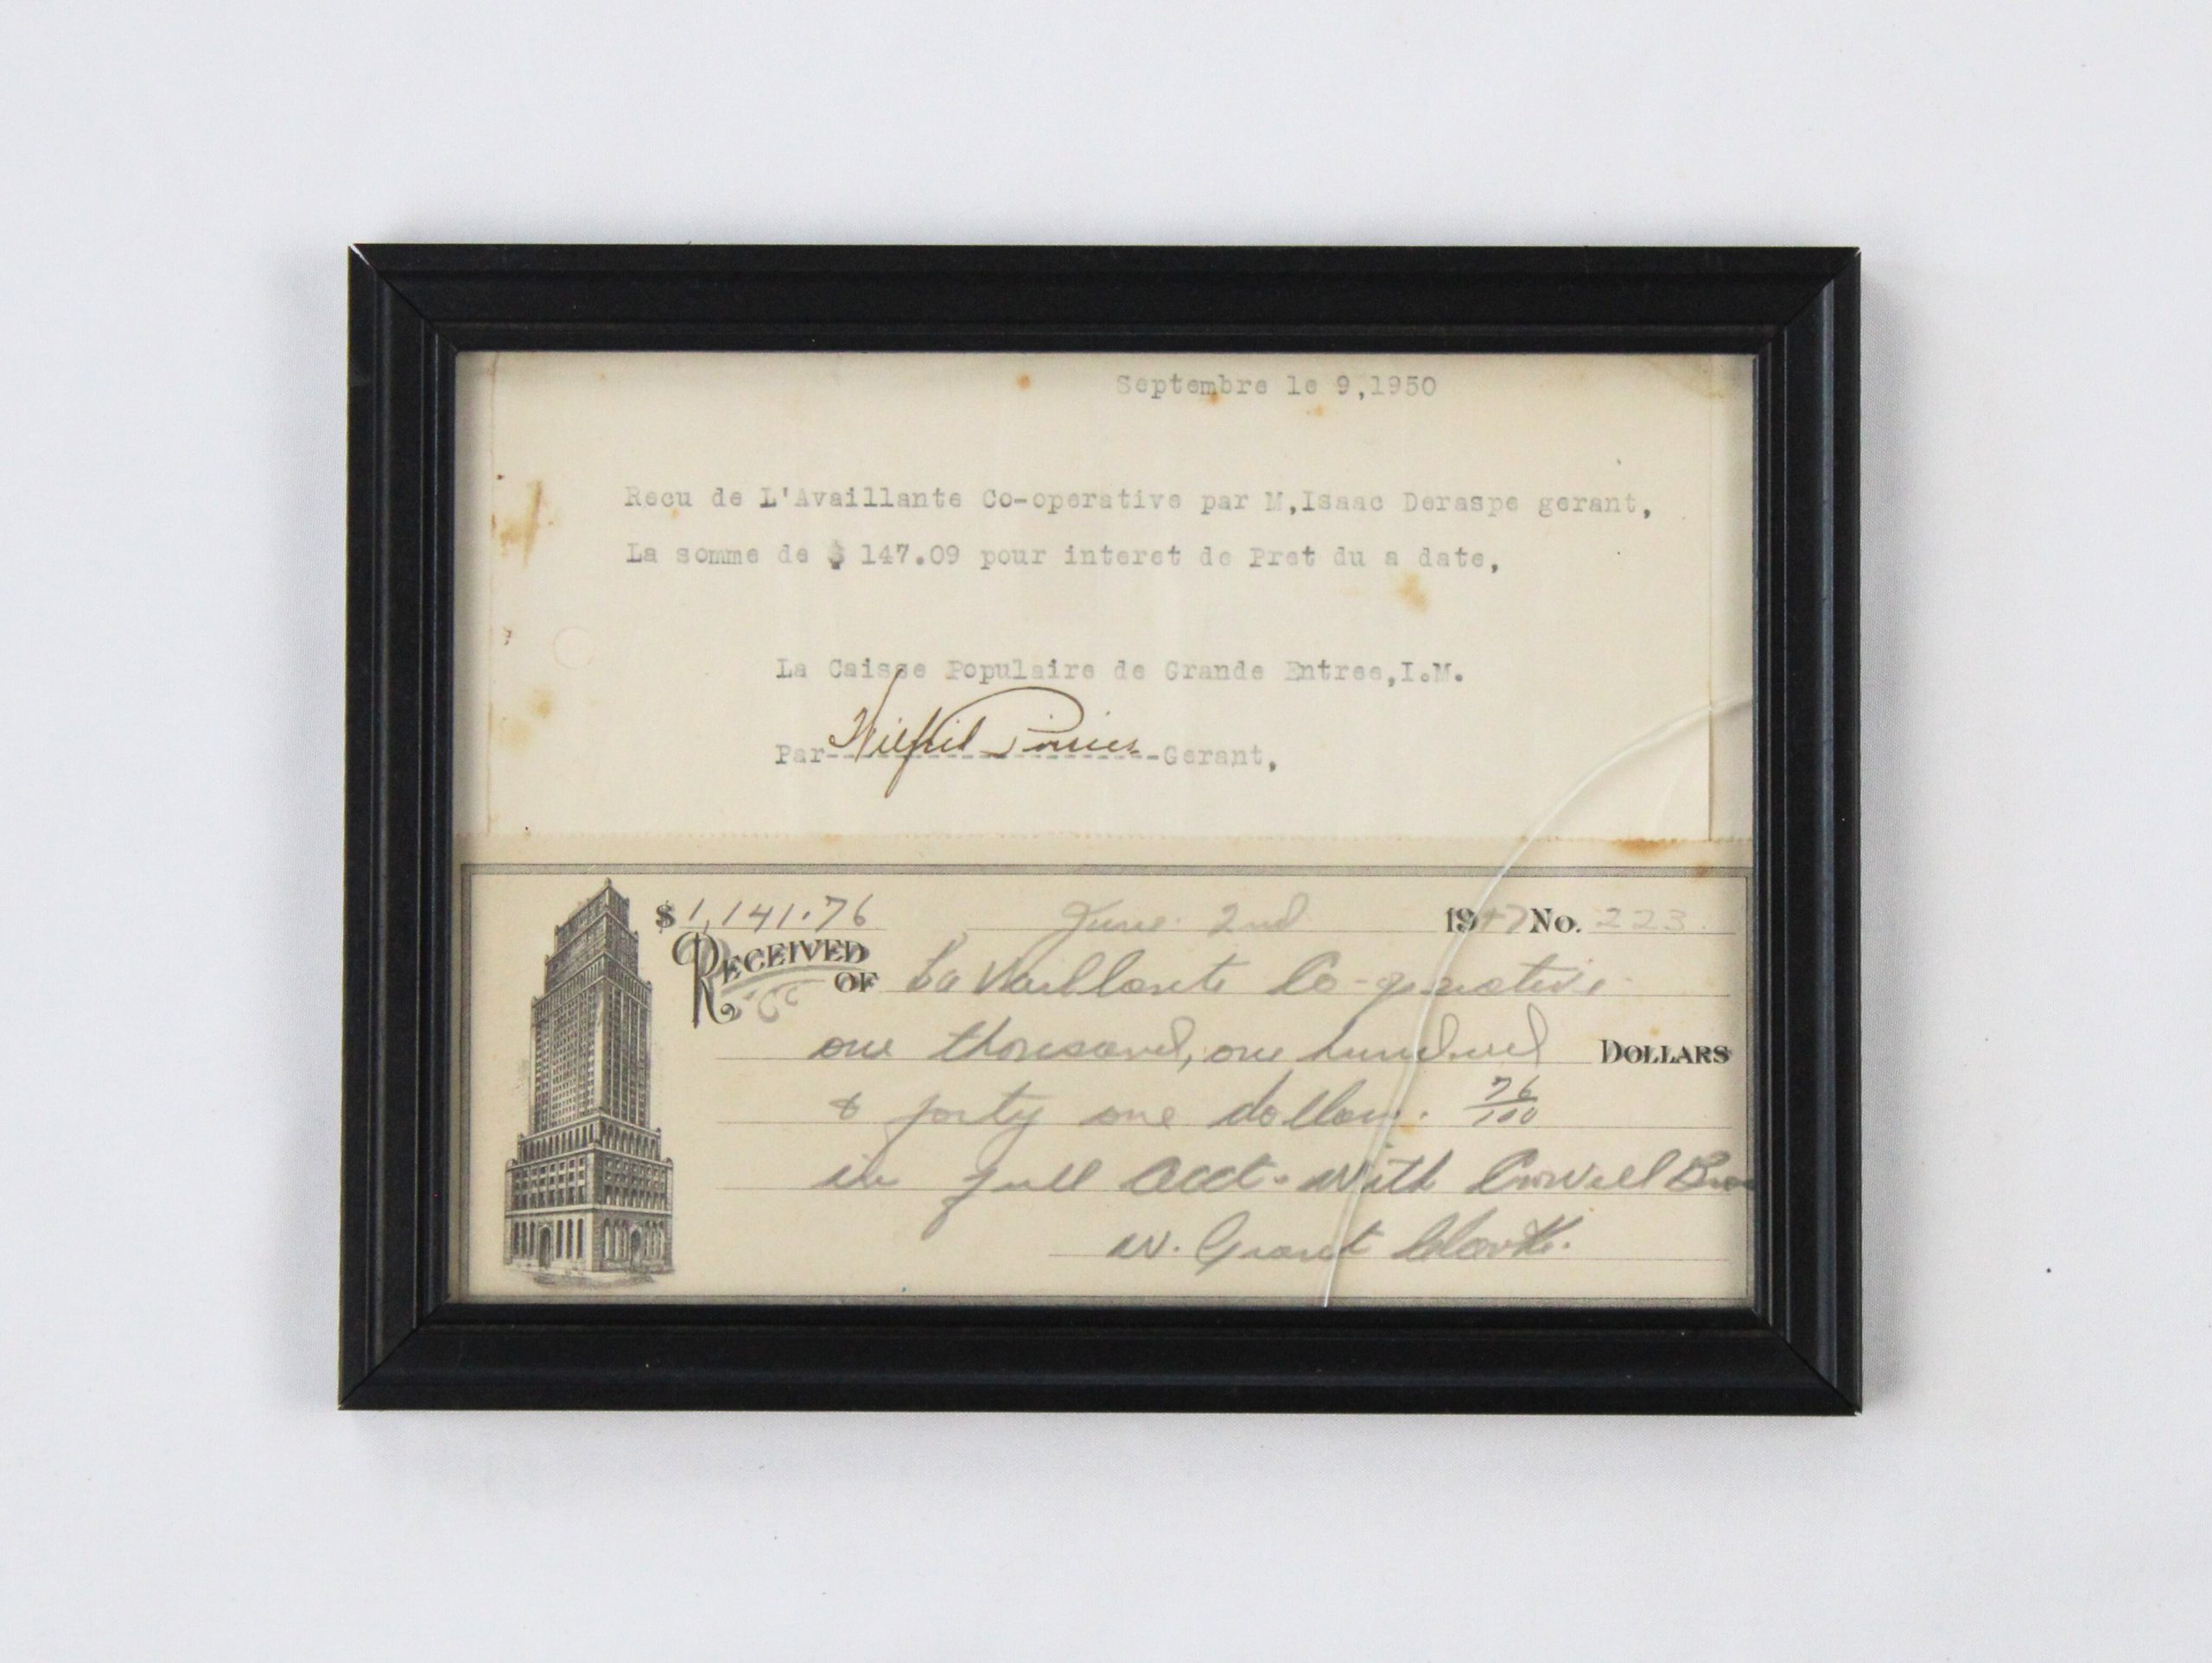 Septembre le 9,1950
Recu de L'Availlante Co-operative par M,Isaac Deraspe gerant,
La somme de $ 147.09 pour interet de Pret du a date,
La Caisse Populaire de Grande Entree,I.M.
Par Wilfrid Poirier Gerant,
$ 1,141.76 June 2nd 1947 No. 223.
RECEIVED OF La Vaillante Co-operative
one thousand, one hundred DOLLARS
& forty one dollars. 76/100
in full acct. with
W. Grant Clark.